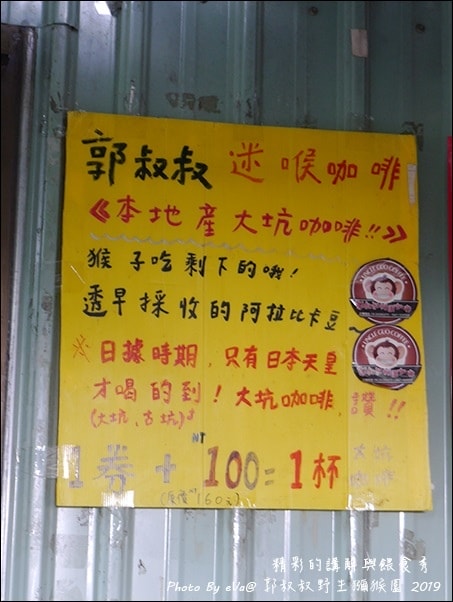 郭叔叔 迷喉咖啡
《本地產大坑咖啡!!》
猴子吃剩下的哦!
透早採收的阿拉比卡豆~
UNCLE GUO COFFEE
UNCLE GUO COFFEE
※日據時期,只有日本天皇
才喝的到!大坑咖啡,讚!!
(大坑、古坑)
NT
1券+100=1杯 大坑咖啡
(原價160元)
精彩的講解與餵食秀
Photo By eVa@ 郭叔叔野生獼猴園 2019